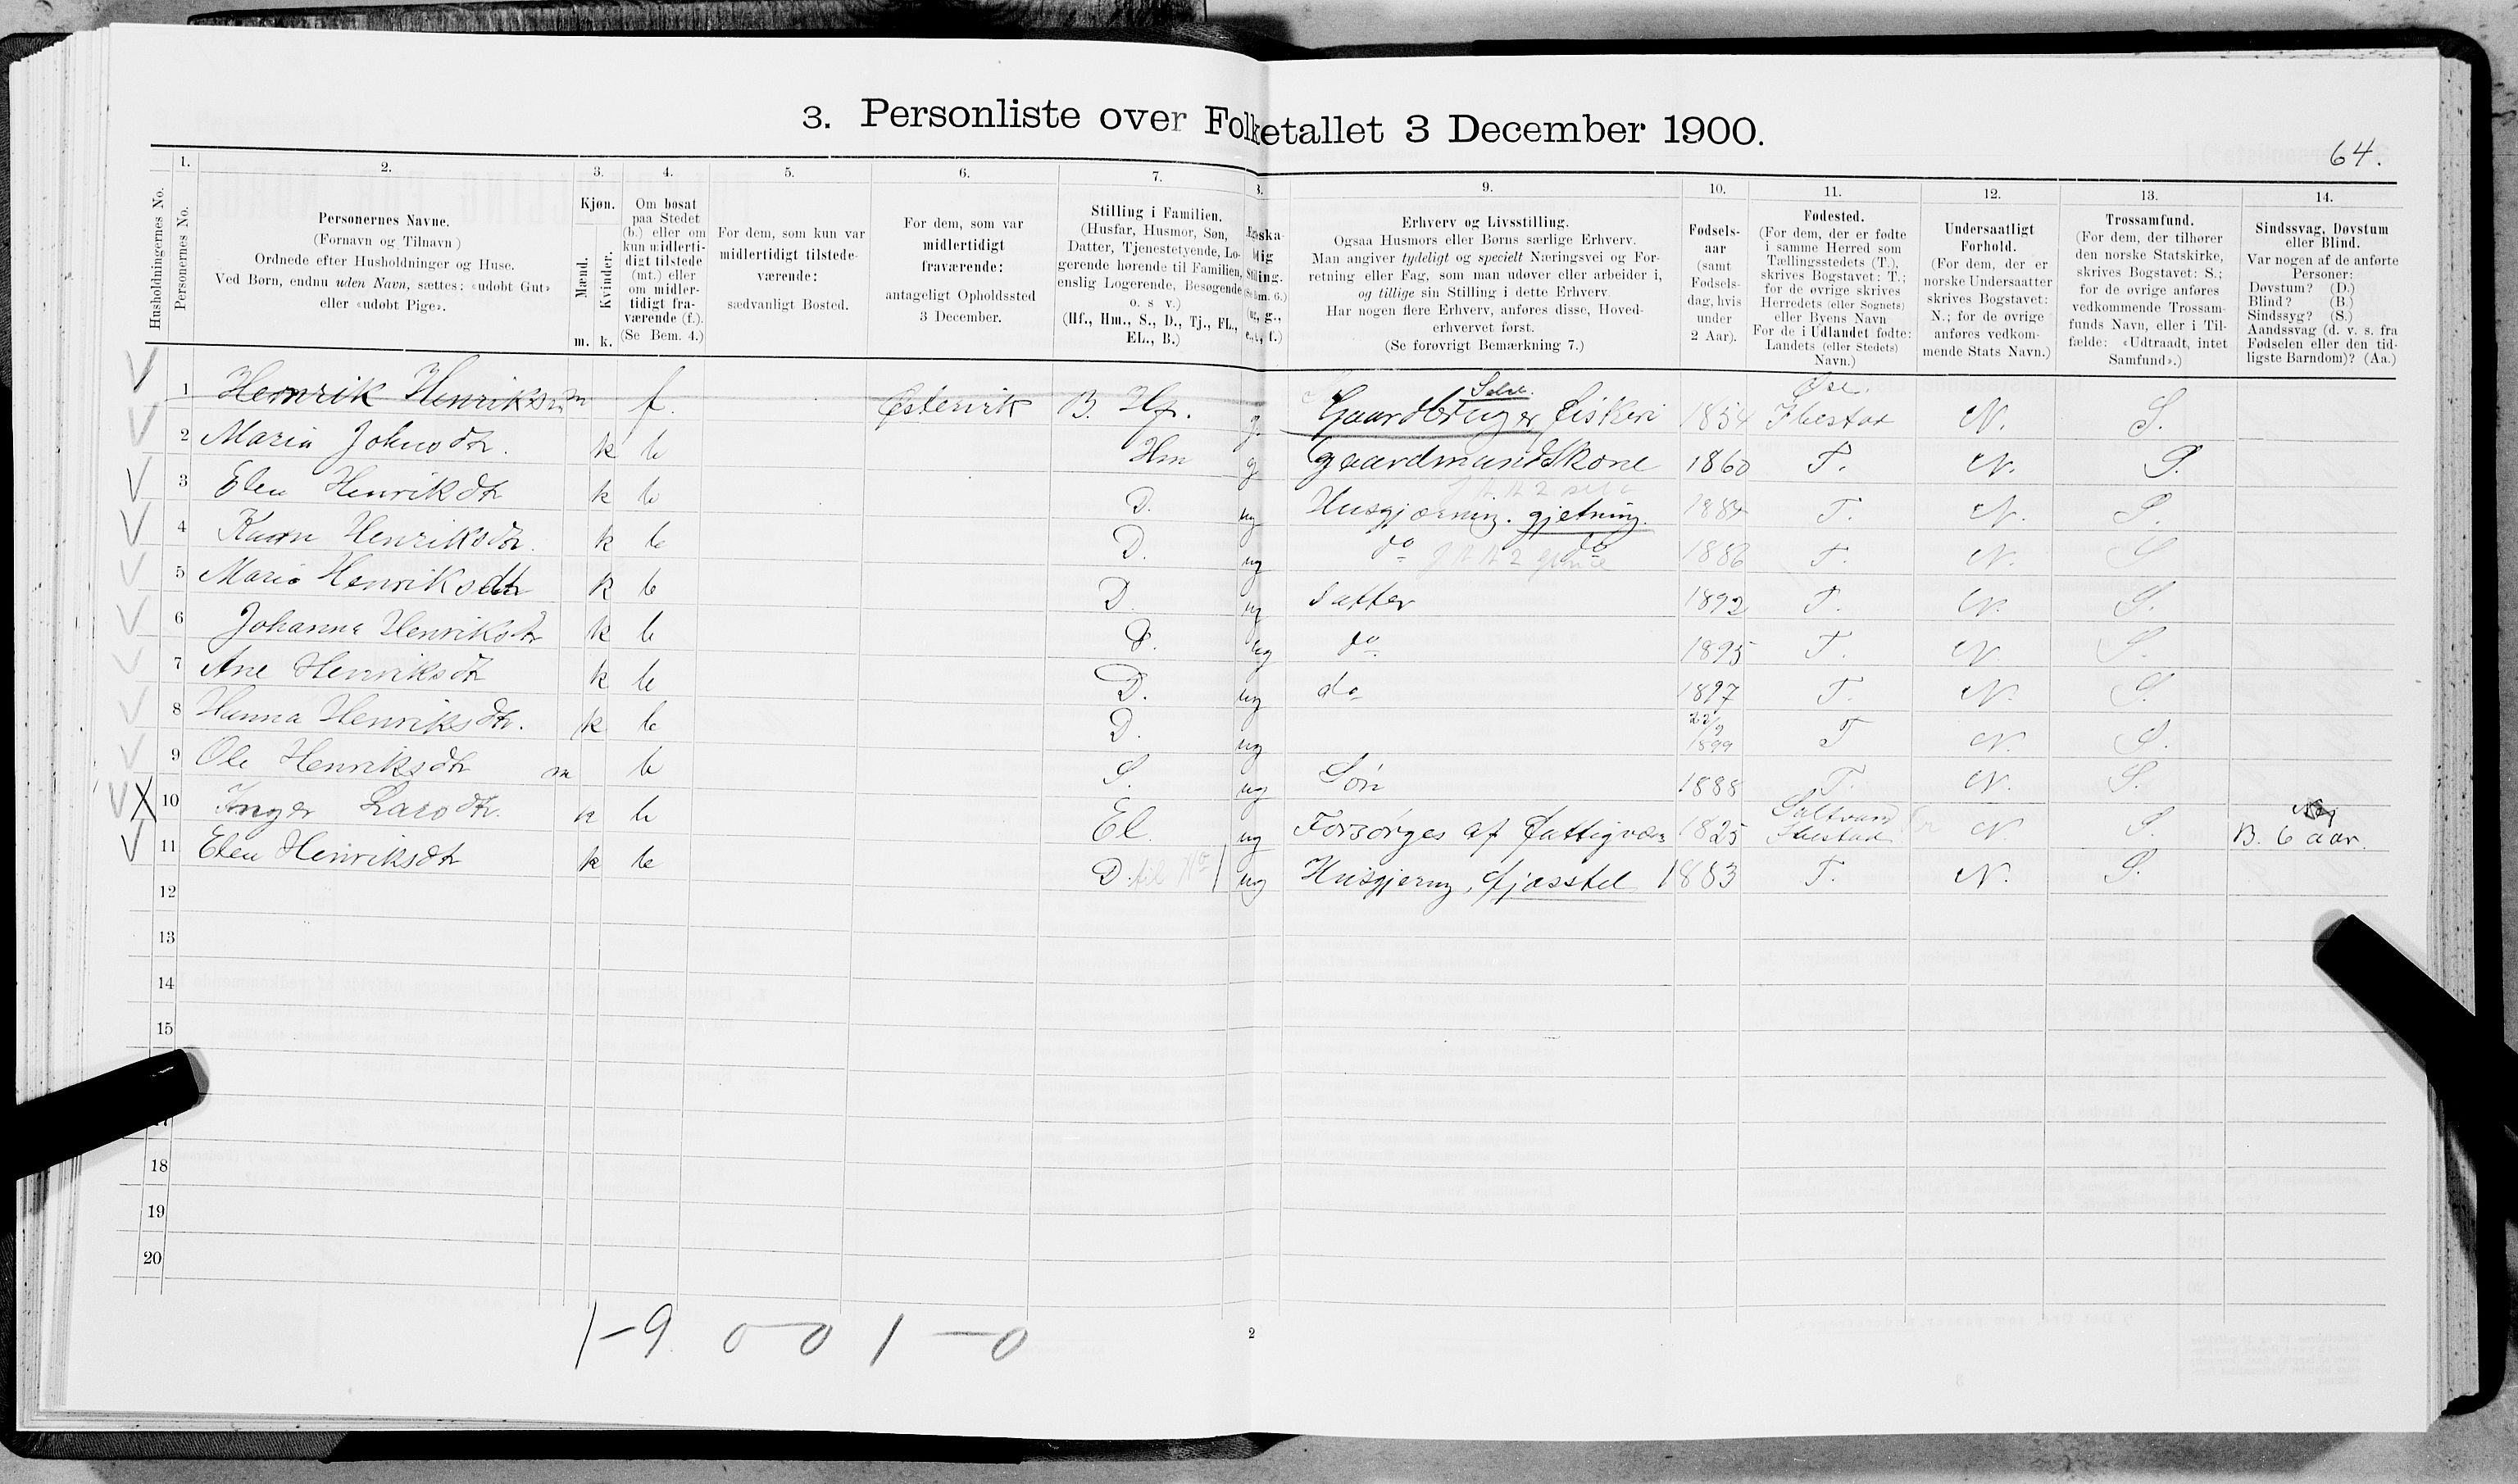 3. Personliste over Folketallet 3 December 1900.
64.
1. 2. 3. 4. 5. 6. 7. 8. 9. 10. 11. 12. 13. 14.
Husholdningernes No.
Personernes No.
Personernes Navne.
(Fornavn og Tilnavn)
Ordnede efter Husholdninger og Huse.
Ved Børn, endnu uden Navn, sættes: «udøbt Gut»
eller «udøbt Pige».
Kjøn.
Mænd.
Kvinder.
m. k.
Om bosat
paa Stedet
(b.) eller om
kun midlerti-
digt tilstede
(mt.) eller
om midler-
tidigt fra-
værende (f.).
(Se Bem. 4.)
For dem, som kun var
midlertidigt tilstede-
værende:
sædvanligt Bosted.
For dem, som var
midlertidigt
fraværende:
antageligt Opholdssted
3 December.
Stilling i Familien.
(Husfar, Husmor, Søn,
Datter, Tjenestetyende, Lo-
gerende hørende til Familien,
enslig Logerende, Besøgende
o. s v.)
(Hf., Hm., S., D., Tj., FL.,
EL., B.)
Erhverv og Livsstilling.
Ogsaa Husmors eller Børns særlige Erhverv.
Man angiver tydeligt og specielt Næringsvei og For-
retning eller Fag, som man udøver eller arbeider i,
og tillige sin Stilling i dette Erhverv.
Har nogen flere Erhverv, anføres disse, Hoved-
erhvervet først.
(Se forøvrigt Bemærkning 7.)
Fødsels-
aar
(samt
Fødsels-
dag, hvis
under
2 Aar).
Fødested.
(For dem, der er fødte
i samme Herred som
Tællingsstedets (T.),
skrives Bogstavet: T.;
for de øvrige skrives
Herredets (eller Sognets)
eller Byens Navn
For de i Udlandet fødte:
Landets (eller Stedets)
Navn.)
Undersaatligt
Forhold.
(For dem, der er
norske Undersaatter
skrives Bogstavet:
N.; for de øvrige
anføres vedkom-
mende Stats Navn.)
Trossamfund.
(For dem, der tilhører
den norske Statskirke,
skrives Bogstavet: S.;
for de øvrige anføres
vedkommende Trossam-
funds Navn, eller i Til-
fælde: «Udtraadt, intet
Samfund».)
Sindssvag, Døvstum
eller Blind.
Var nogen af de anførte
Personer:
Døvstum? (D.)
Blind? (B.)
Sindssyg? (S.)
Aandssvag (d. v. s. fra
Fødselen eller den tid-
ligste Barndom)? (Aa.)
1 Henrik Henriksen m f. Østervik B. Hf. g. Gaardbruger Selve. fiskeri 1854 Ibestad N. S.
2 Maria Johnsdtr. k b Hm g. gaardmandskone 1860 T. N. S.
3 Elen Henrikdtr k b D. ug Husgjerning. gjetning. 1884 T. N. S.
4 Karn Henriksdtr. k b D. ug do do 1886 T. N. S
5 Maria Henriksdtr k b D. ug datter 1892 T. N. S.
6 Johanna Henriksdtr k b D. ug do 1895 T. N. S.
7 Ane Henriksdtr k b D. ug do 1897 T. N. S.
8 Hanna Henriksdtr. k b D. ug 22/9 1899 T N. S.
9 Ole Henriksdtr m b S. ug Søn 1888 T. N. S.
10 Inger Larsdtr. k b El. ug Forsørges af fattigvæs 1825 Ibestad N S. B. 6 aar.
11 Elen Henriksdtr k b D. til No 1 ug Husgjerng, fjøsstel 1883 T. N. S.
12
13
14
15
17
18
19
20
1-9 0-0 1-0
2